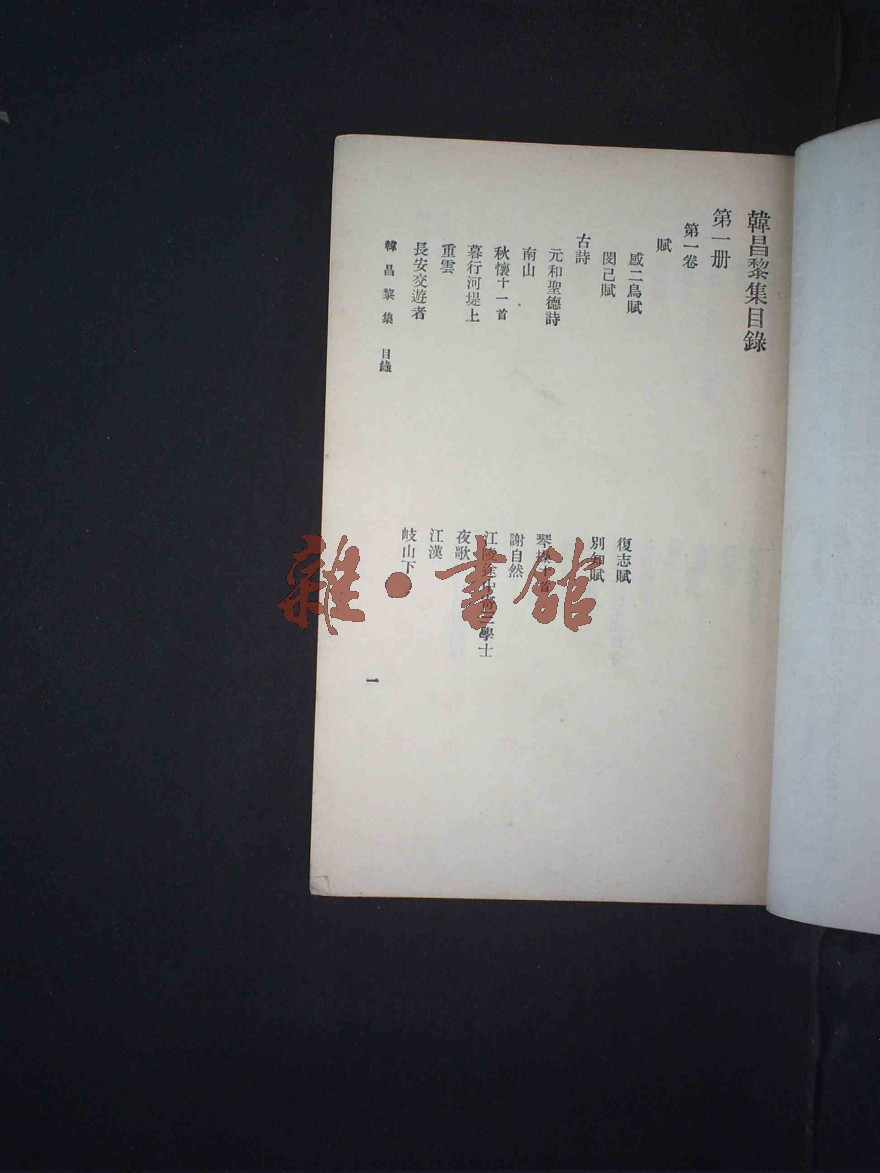 韓昌黎集目錄
第一册
第一卷
賦
感二鳥賦
復志賦
閔己賦
別知賦
古詩
元和聖德詩
琴操十首
南山
謝自然
秋懷十一首
江陵途中寄三學士
暮行河堤上
夜歌
重雲
江漢
長安交遊者
岐山下
韓昌黎集 目錄
一
雜·書館